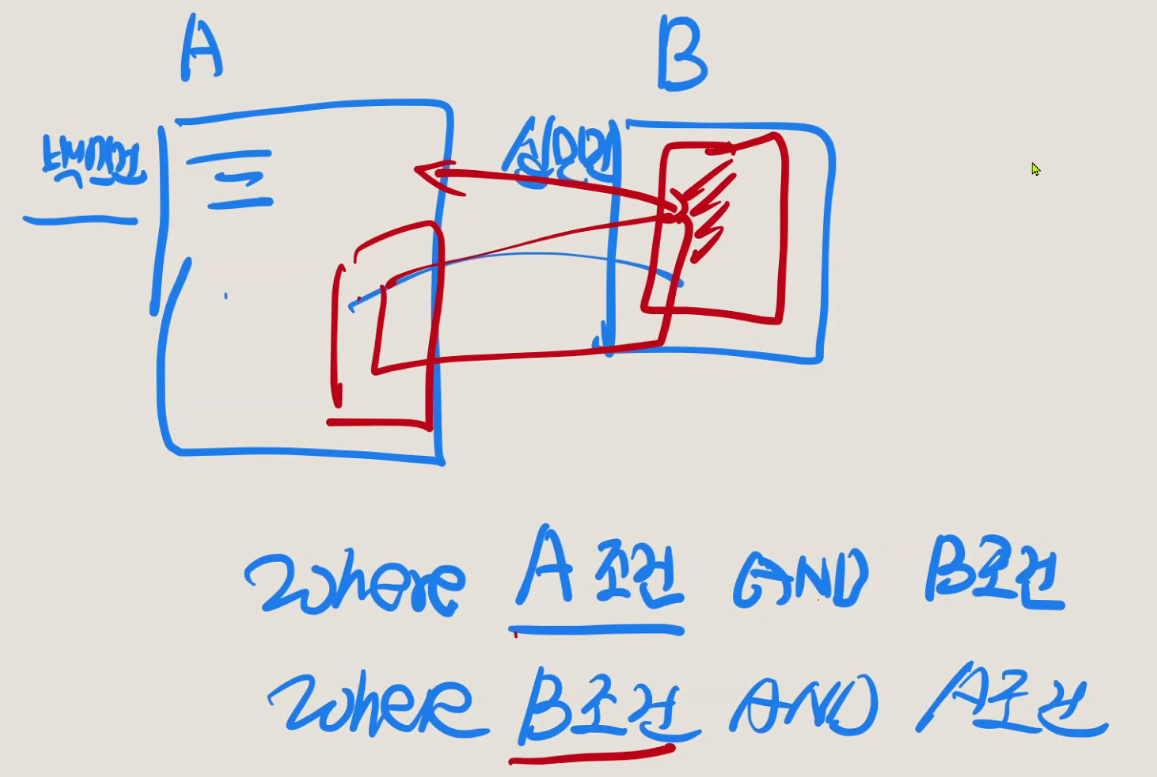 A B
백만건 십만건
Where A 조건 AND B조건
Where B조건 AND A조건